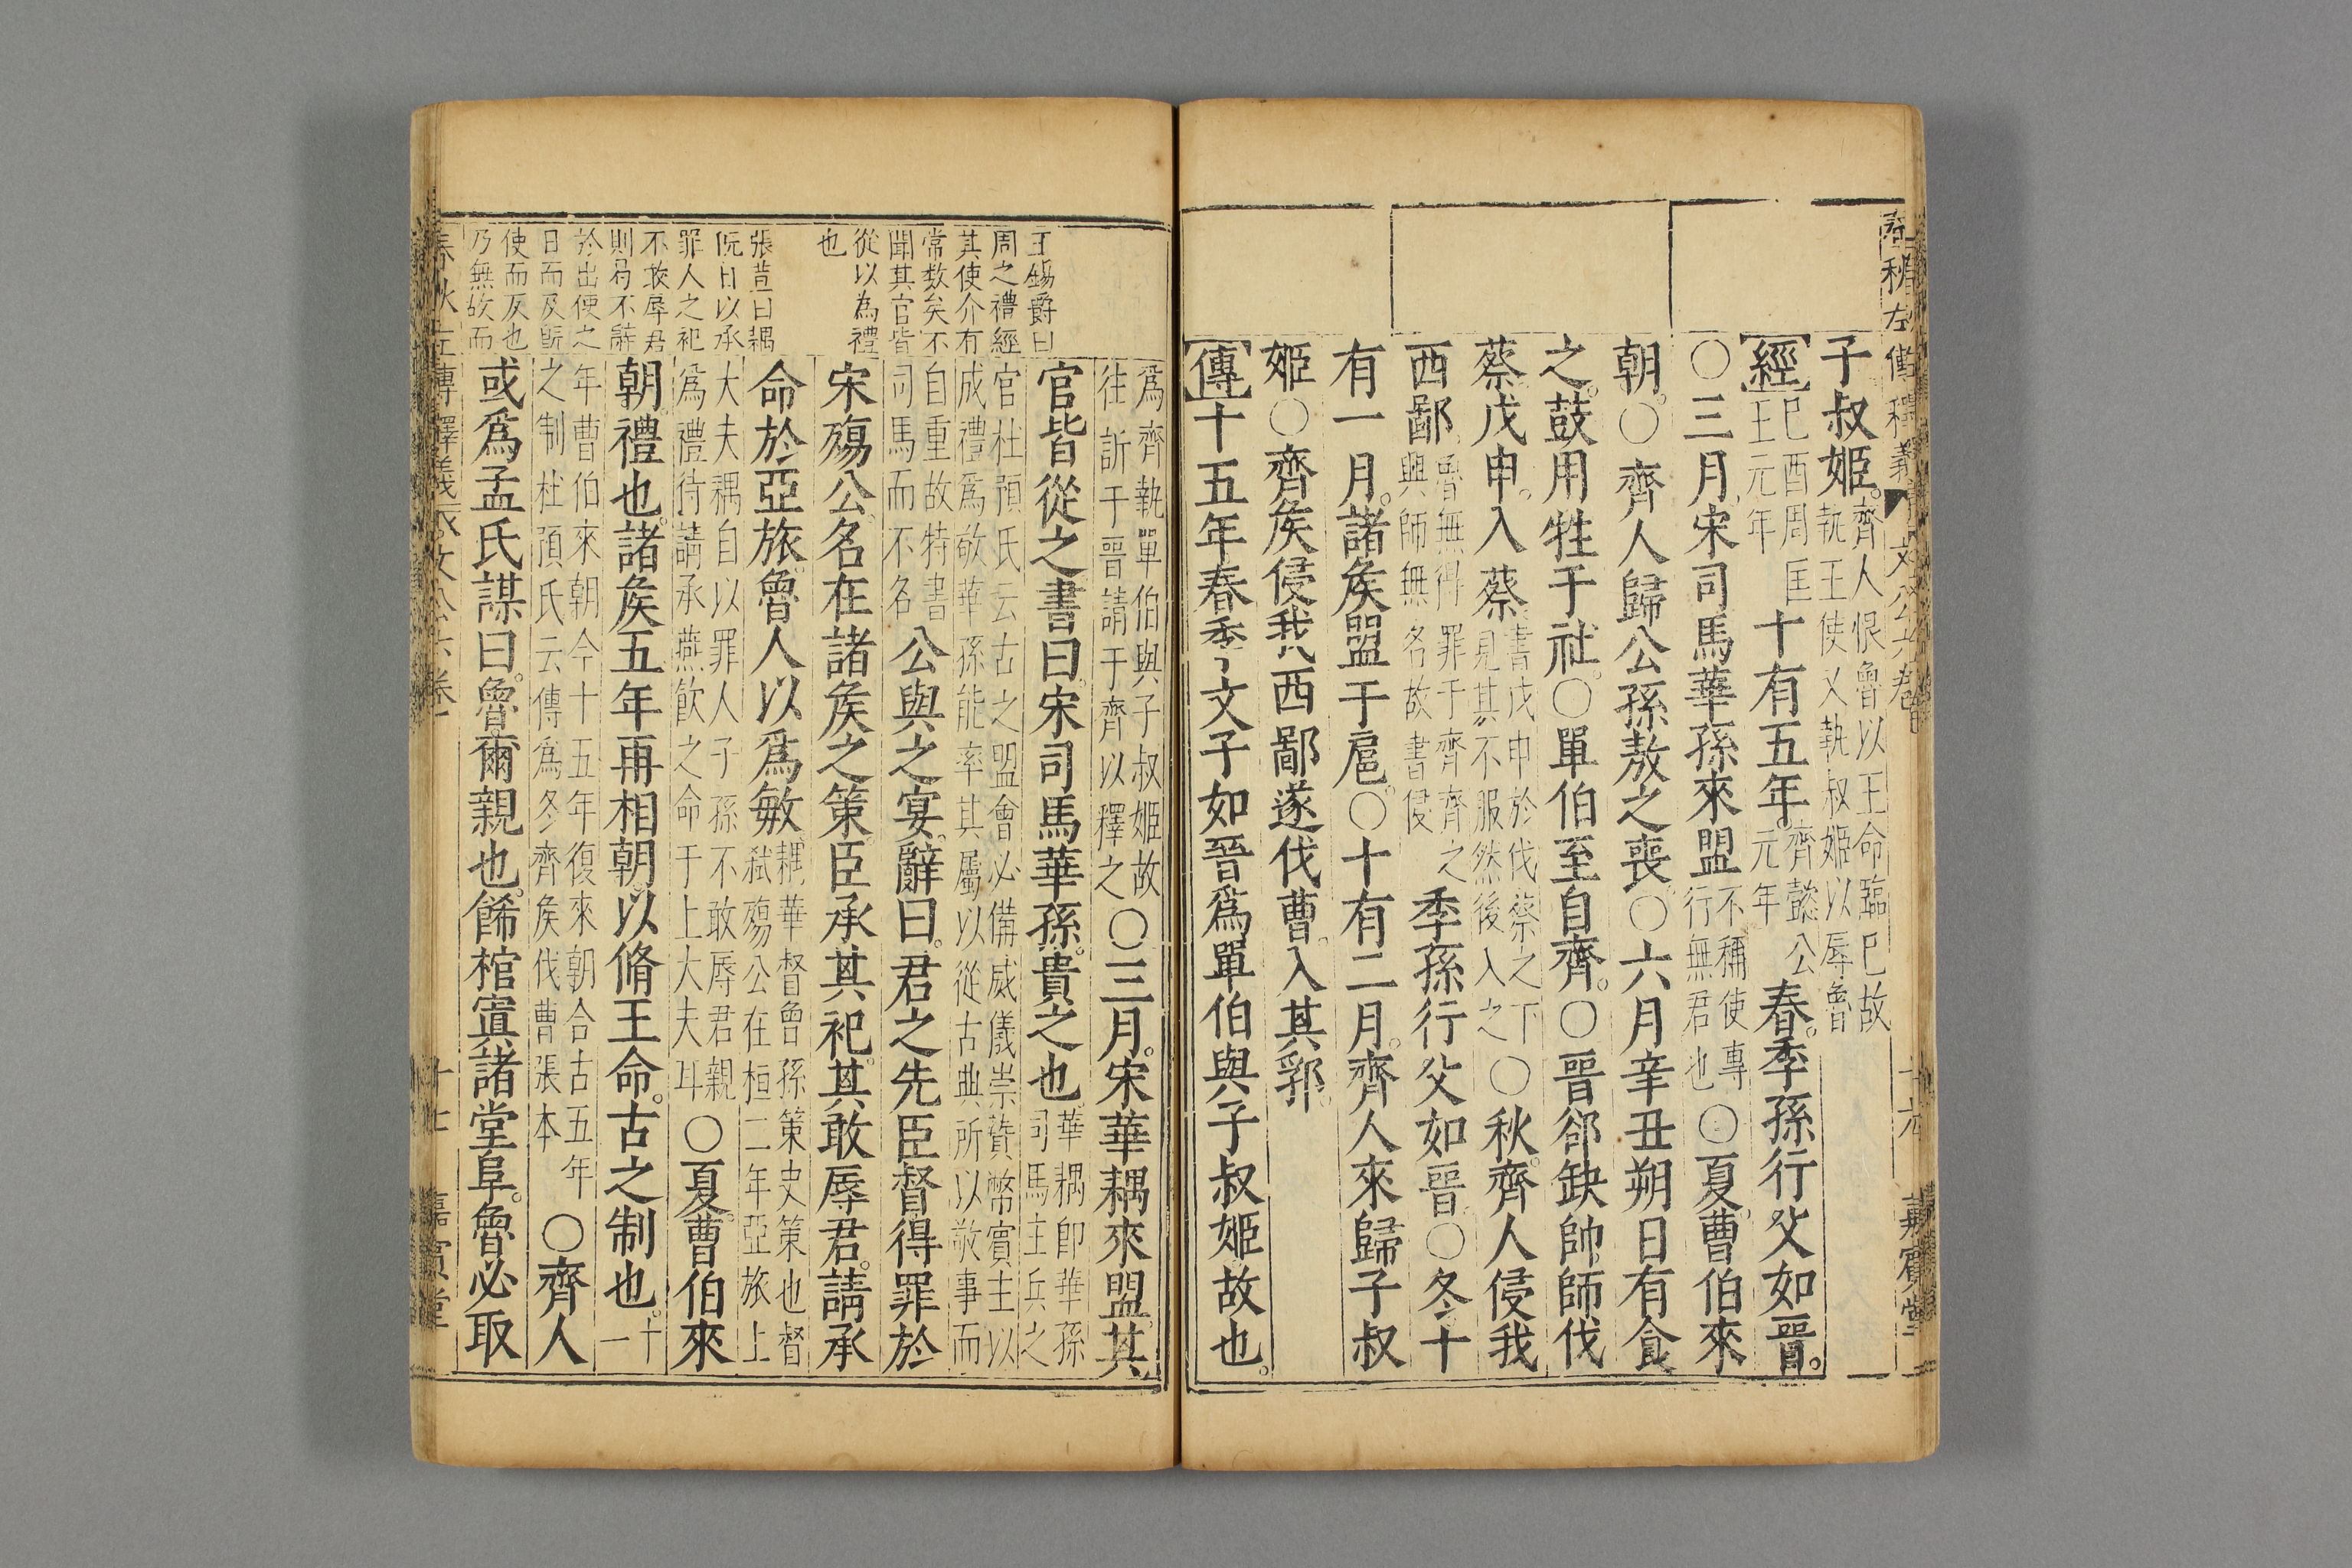 子叔姬。齊人恨魯以王命臨已故執王使又執叔姬以辱魯
經己酉周匡王元年十有五年。齊懿公元年春。季孫行父如晉。
○三月。宋司馬華孫來盟不稱使專行無君也○夏。曹伯來
朝。○齊人歸公孫敖之喪○六月辛丑朔日有食
之。鼓用牲于社。○單伯至自齊。○晉郤缺帥師伐
蔡。戊申。入蔡書戊申於伐蔡之下見其不服然後入之○秋。齊人侵我
西鄙魯無得罪于齊齊之興師無名故書侵季孫行父如晉○冬十
有一月。諸矦盟于扈。○十有二月。齊人來歸子叔
姬○齊矦侵我西鄙遂伐曹。入其郛。
傳十五年春季文子如晉為單伯與子叔姬故也。
為齊執單伯與子叔姬故往訴于晉請于齊以釋之○三月。宋華耦來盟。其
官皆從之。書曰。宋司馬華孫。貴之也華耦即華孫司馬主兵之
官杜預氏云古之盟會必備威儀崇贄幣賓主以成禮為敬華孫能率其屬以從古典所以敬事而
自重故特書司馬而不名公與之宴。辭曰。君之先臣督得罪於
宋殤公。名在諸矦之策。臣承其祀。其敢辱君。請承
命於亞旅。魯人以為敏耦華督曾孫策史策也督弒殤公在桓二年亞旅上
大夫耦自以罪人子孫不敢辱君親為禮待請承燕飲之命于上大夫耳○夏。曹伯來
朝。禮也。諸矦五年再相朝。以脩王命。古之制也。十一
年曹伯來朝今十五年復來朝合古五年之制杜預氏云傳為冬齊矦伐曹張本○齊人
或為孟氏謀曰。魯爾親也。飾棺寘諸堂阜。魯必取
王錫爵曰
周之禮經
其使介有
常数矣不
聞其官皆
從以為禮
也
張萱曰耦
既曰以承
罪人之祀
不敢辱君
則易不辭
於出使之
日而及既
使而反也
乃無故而